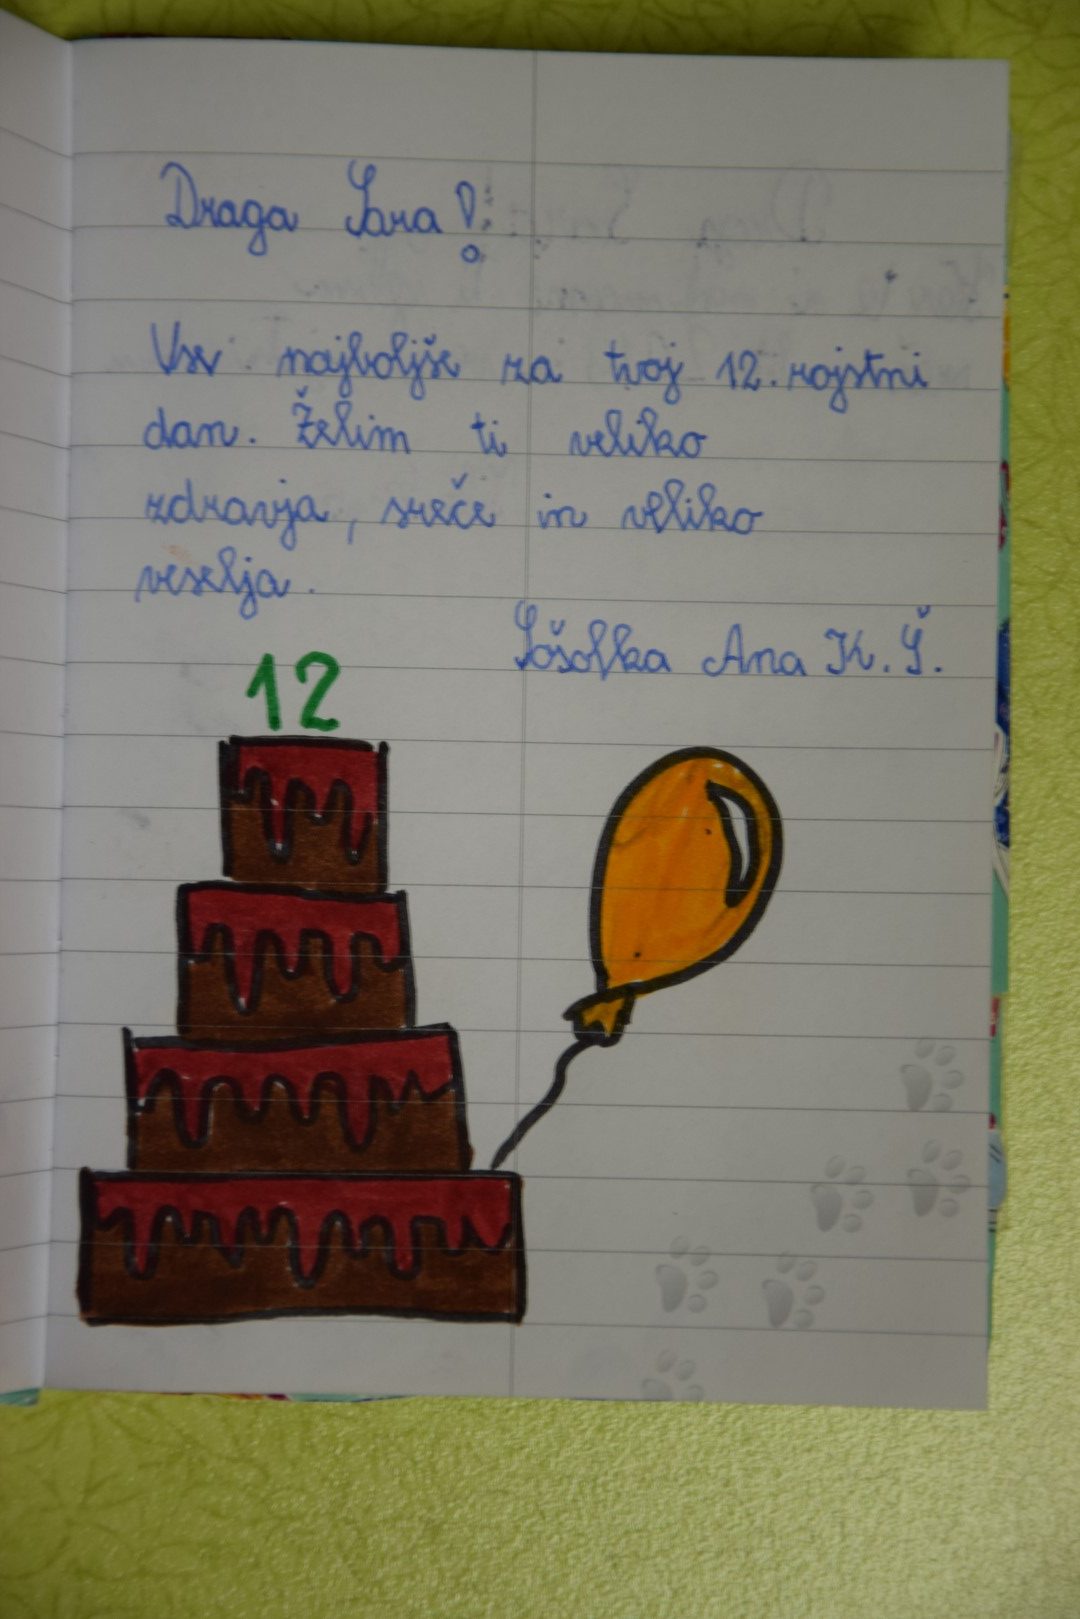 Draga Sara!
Vse najboljše za tvoj 12. rojstni
dan. Želim ti veliko
zdravja, sreče in veliko
veselja.
Sošolka Ana K. Š.
12